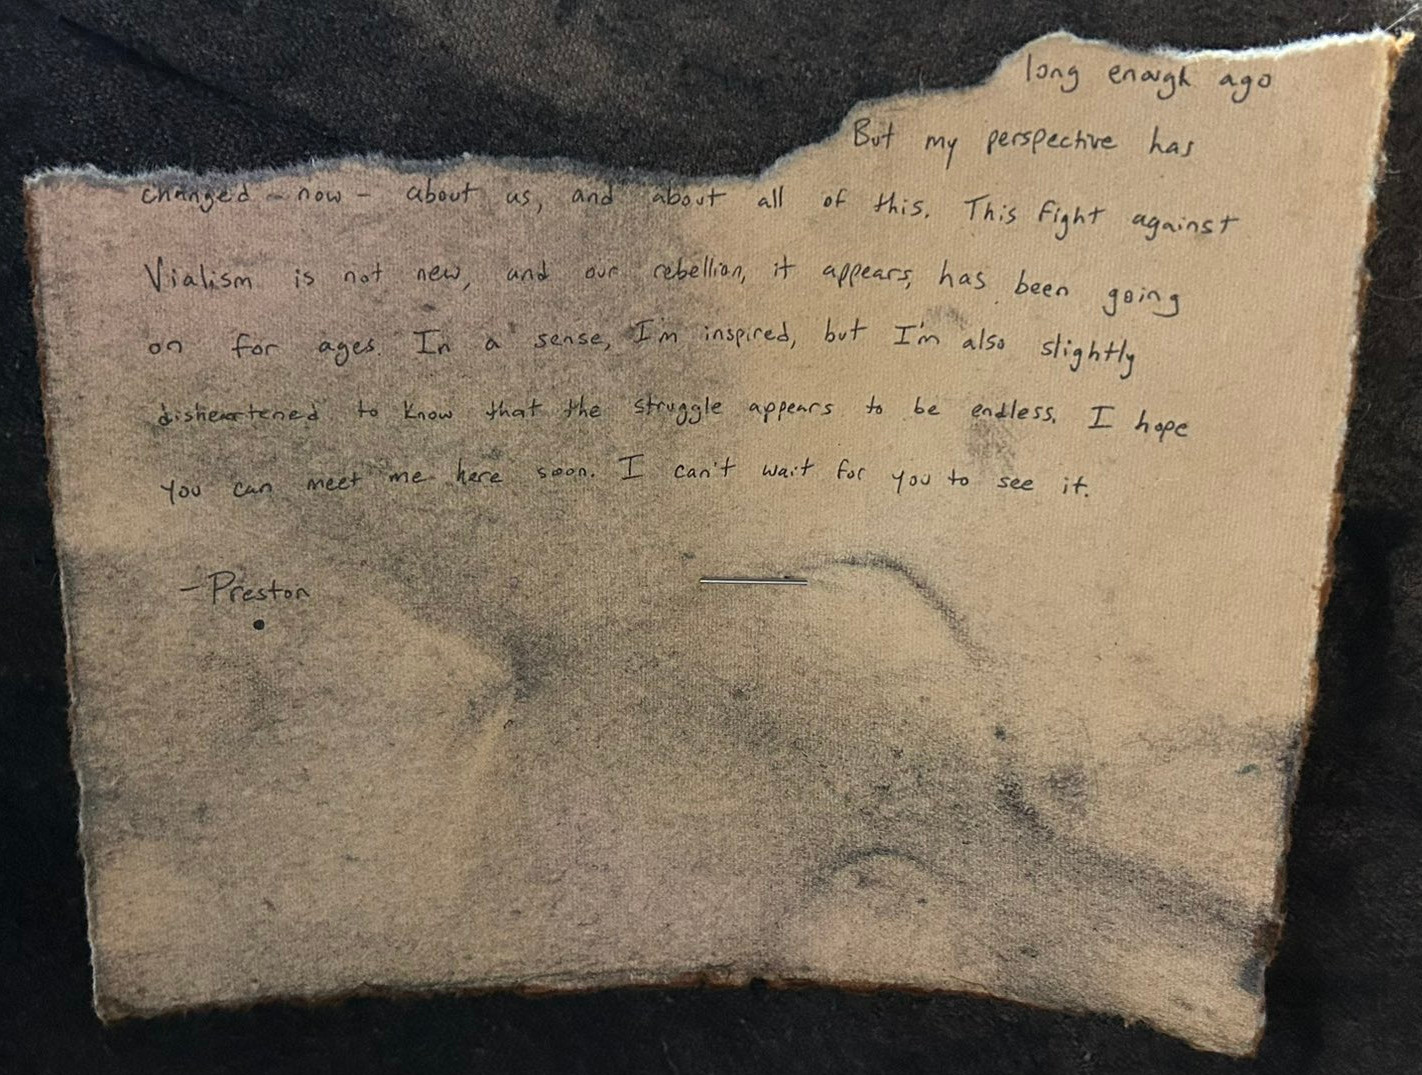 long enough ago
But my perspective has
changed - now - about us, and about all of this. This fight against
Vialism is not new, and our rebellion, it appears, has been going
on for ages. In a sense, I'm inspired, but I'm also slightly
disheartened to know that the struggle appears to be endless. I hope
you can meet me here soon. I can't wait for you to see it.
-Preston